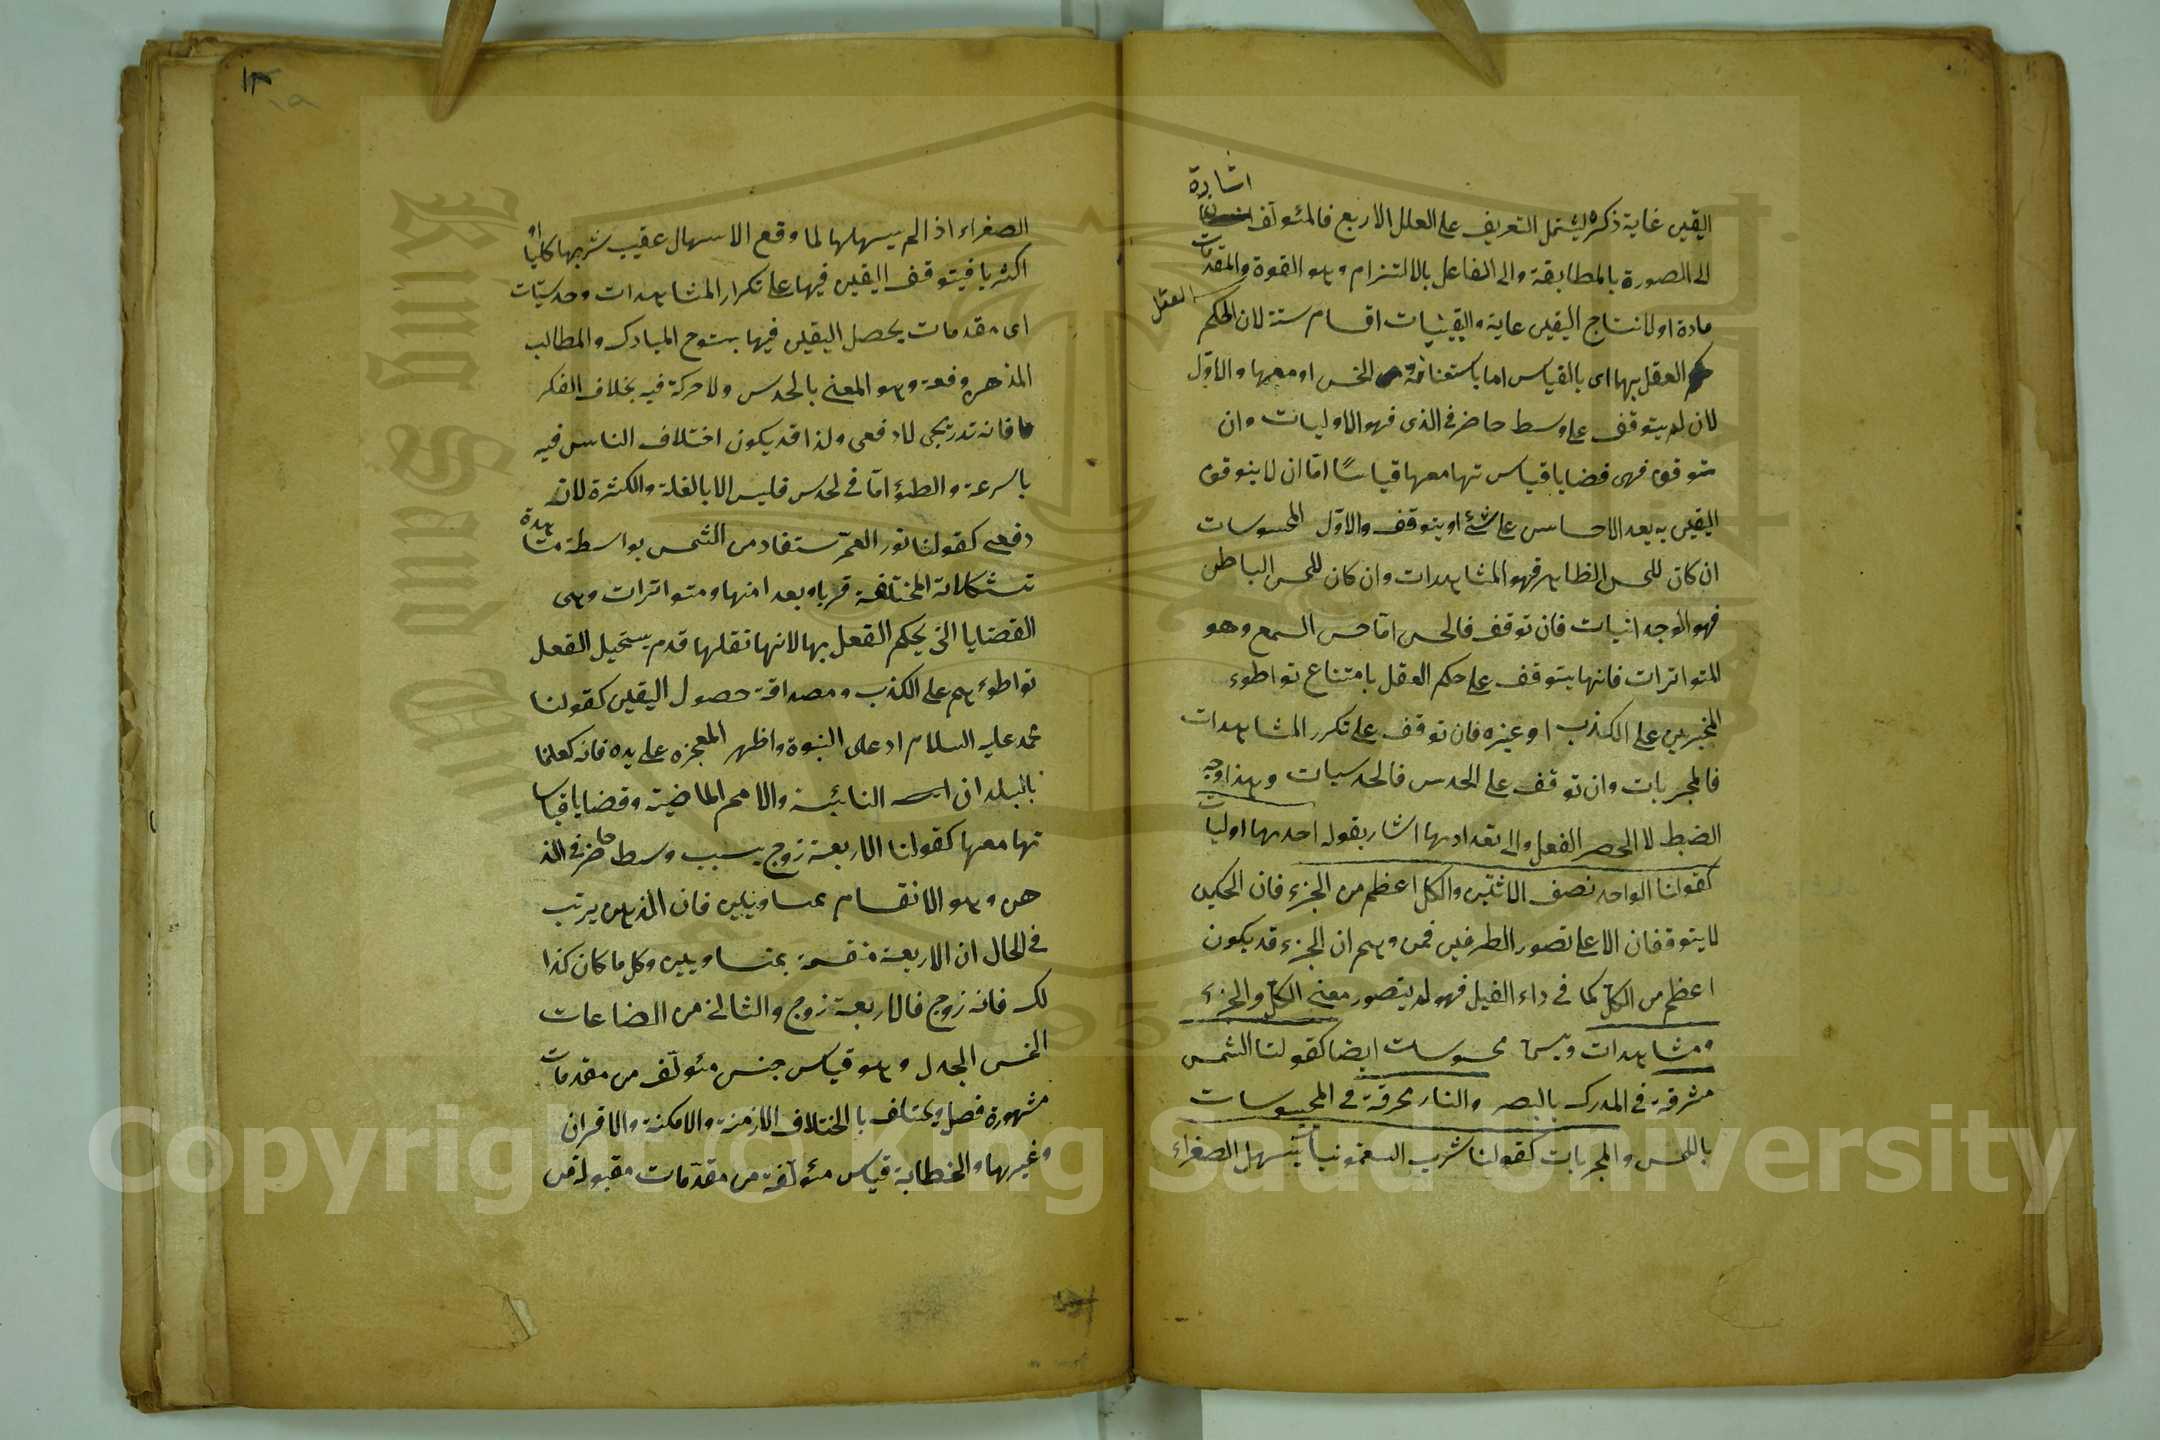 اشارة
اليقين غاية ذكره ليشتمل التعريف على العلل الاربع فالمئولف
الى الصورة بالمطابقة والى الفاعل بالالتزام وهو القوة والمقدمات
العقل
مادة اولانتاج اليقين غاية واليقينيات اقسام ستة لان الحكم
العقل بها اى بالقياس اما باستعانة من الحس او معها والاول
لان لم يتوقف على وسط حاضر فى الذى فهو الاوليات وان
يتوقف فهى قضايا قياس تها معها قياسًا اما ان لا يتوقف
اليقين به بعد الاحساس على شئ او يتوقف والاول المحسوسات
ان كان للحس الظاهر فهو المشاهدات وان كان للحس الباطن
فهو الوجدانيات فان توقف فالحس اما حس السمع وهو
المتواترات فانها يتوقف على حكم العقل بامتناع تواطوء
المخبرين على الكذب او غيره فان توقف على تكرر المشاهدات
فالمجربات وان توقف على الحدس فالحدسيات وهذا وجه
الضبط لا الحصر الفعل والى تعدادها اشار بقوله احدها اوليات
كقولنا الواحد نصف الاثنين والكل اعظم من الجزء فان الحكمين
لا يتوقفان الا على تصور الطرفين فمن وهم ان الجزء قد يكون
اعظم من الكل كما فى داء الفيل فهو لم يتصور معنى الكل والجزء
ومشاهدات ويسمى محسوسات ايضا كقولنا الشمس
مشرقة فى المدرك بالبصر والنار محرقة فى المحسوسات
باللمس والمجربات كقولنا شرب السقمونيا يسهل الصفراء
١٣
١٩
الصفراء اذ الم يسهلها لما وقع الاسهال عقيب شربها كليا او
اكثريا فيتوقف اليقين فيها على تكرار المشاهدات وحدسيات
اى مقدمات يحصل اليقين فيها بسنوح المبادى والمطالب
الذهن دفعة وهو المعنى بالحدس ولا حركة فيه بخلاف الفكر
فانه تدريجى لا دفعى ولذا قد يكون اختلاف الناس فيه
باسرعة والطئؤ اما فى لحدس فليس الا بالقلة والكثرة لانه
دفعى كقولنا نور القمر ستفاد من الشمس بواسطة مشاهدة
تشكلاته المختلفة قربا وبعدا منها ومتواترات وهى
القضايا التى يحكم القعل بها لانها نقلها قدم يستحيل القعل
تواطوء هم على الكذب ومصداقة حصول اليقين كقولنا
محمد عليه السلام ادعى النبوة واظهر المعجزه على يده فانه كعلمنا
بالبلدان النائية والامم الماضية وقضايا قياسا
تها معها كقولنا الاربعة زوج بسبب وسط حاضر فى الذ
هن وهو الانقسام بمساويين فان الذهن يرتب
فى الحال ان الاربعة منقسمة بمتساويين وكل ما كان كذا
لك فانه زوج فالاربعة زوج والثانى من الضاعات
الخمس الجدل وهو قياس جنس مئولف من مقدمات
مشهورة فصل ويختلف بالختلاف الازمنة والامكنة والاقران
وغيرها والخطابة قياس مئولفة من مقدمات مقبولة من
Copyright © King Saud University